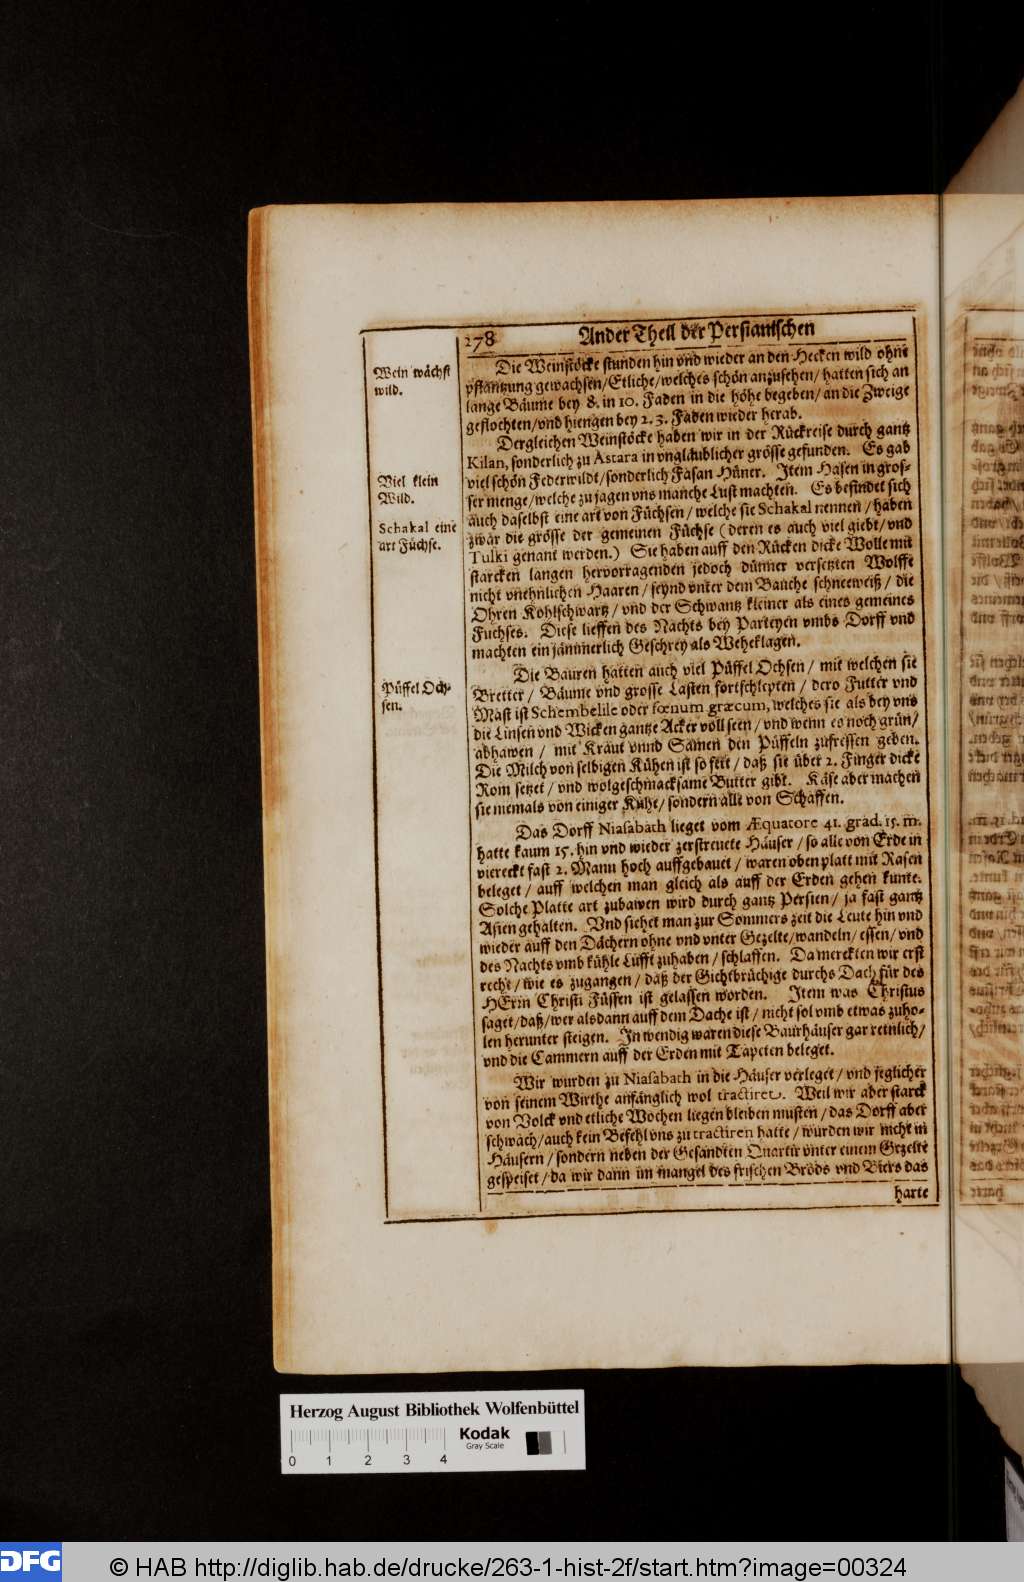 278 Ander Theil der Persianischen
Wein wächst
wild.
Die Weinstöcke stunden hin vnd wieder an den Hecken wild ohne
pflantzung gewachsen/Etliche/welches schön anzusehen/hatten sich an
lange Bäume bey 8. in 10. Faden in die höhe begeben/an die Zweige
geflochten/vnd hiengen bey 2. 3. Faden wieder herab.
Dergleichen Weinstöcke haben wir in der Rückreise durch gantz
Kilan, sonderlich zu Astara in vnglaublicher grösse gefunden. Es gab
Viel klein
Wild.
viel schön Federwildt/sonderlich Fasan Hüner. Item Hasen in gros-
ser menge/welche zu jagen vns manche Lust machten. Es befindet sich
Schakal eine
art Füchse.
auch daselbst eine art von Füchsen/welche sie Schakal nennen/haben
zwar die grösse der gemeinen Füchse (deren es auch viel giebt/vnd
Tulki genant werden.) Sie haben auff den Rücken dicke Wolle mit
starcken langen hervorragenden jedoch dünner versetzten Wolffe
nicht vnehnlichen Haaren/seynd vnter dem Bauche schneeweiß/die
Ohren Kohlschwartz/vnd der Schwantz kleiner als eines gemeines
Fuchses. Diese lieffen des Nachts bey Parteyen vmbs Dorff vnd
machten ein jämmerlich Geschrey als Weheklagen.
Püffel Och-
sen.
Die Bauren hatten auch viel Püffel Ochsen/mit welchen sie
Bretter/Bäume vnd grosse Lasten fortschlepten/dero Futter vnd
Mast ist Schembelile oder fœnum græcum, welches sie als bey vns
die Linsen vnd Wicken gantze Äcker voll seen/vnd wenn es noch grün/
abhawen/mit Kraut vnnd Samen den Püffeln zufressen geben.
Die Milch von selbigen Kühen ist so fett/daß sie über 2. Finger dicke
Rom setzet/vnd wolgeschmacksame Butter gibt. Käse aber machen
sie niemals von einiger Kuhe/sondern alle von Schaffen.
Das Dorff Niasabath lieget vom Æquatore 41. grad. 15. m.
hatte kaum 15. hin vnd wieder zerstreuete Häuser/so alle von Erde in
viereckt fast 2. Mann hoch auffgebauet/waren oben platt mit Rasen
beleget/auff welchen man gleich als auff der Erden gehen kunte.
Solche Platte art zubawen wird durch gantz Persien/ja fast gantz
Asien gehalten. Vnd siehet man zur Sommers zeit die Leute hin vnd
wieder auff den Dächern ohne vnd vnter Gezelte/wandeln/essen/vnd
des Nachts vmb kühle Lufft zuhaben/schlaffen. Da merckten wir erst
recht/wie es zugangen/daß der Gichtbrüchige durchs Dach für des
HErrn Christi Füssen ist gelassen worden. Item was Christus
saget/daß/wer alsdann auff dem Dache ist/nicht sol vmb etwas zuho-
len herunter steigen. Inwendig waren diese Baurhäuser gar reinlich/
vnd die Cammern auff der Erden mit Tapeten beleget.
Wir wurden zu Niasabath in die Häuser verleget/vnd jeglicher
von seinem Wirthe anfänglich wol tractiret. Weil wir aber starck
von Volck vnd etliche Wochen liegen bleiben musten/das Dorff aber
schwach/auch kein Befehl vns zu tractiren hatte/wurden wir nicht in
Häusern/sondern neben der Gesandten Quartir vnter einem Gezelte
gespeiset/da wir dann im mangel des frischen Brods vnd Biers das
harte
Herzog August Bibliothek Wolfenbüttel
Kodak
Gray Scale
0 1 2 3 4
DFG © HAB http://diglib.hab.de/drucke/263-1-hist-2f/start.htm?image=00324